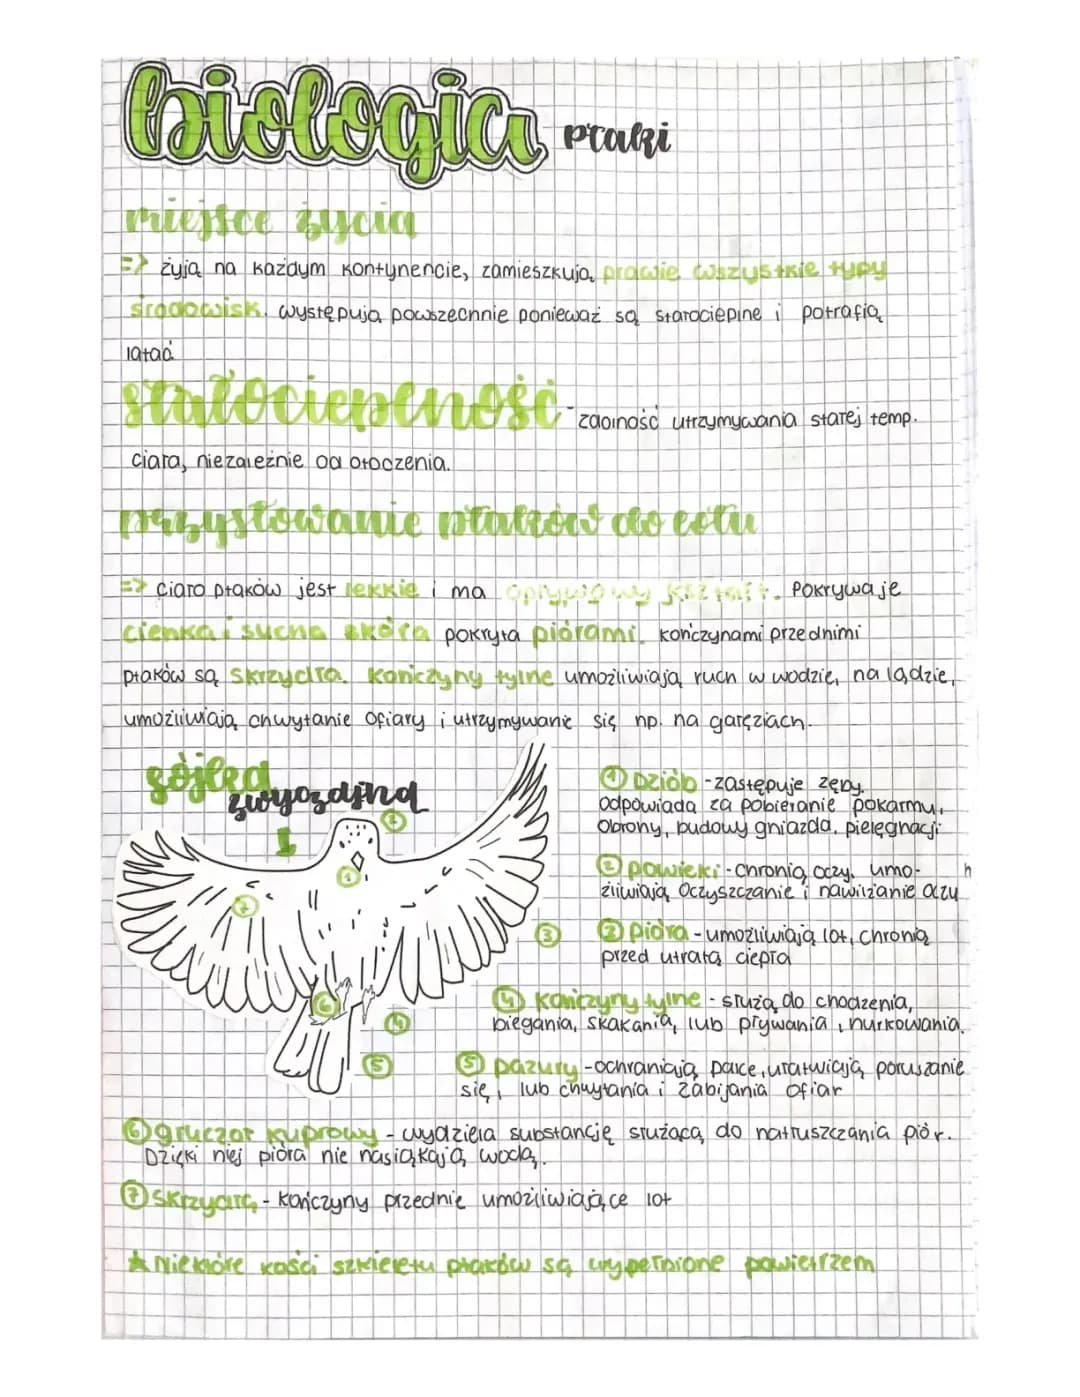 biologia ptaki
miejsce życia
=> żyją na każdym kontynencie, zamieszkują prawie wszystkie typy
środowisk. występują powszechnie ponieważ są stałociepłne i potrafią
latać
stałocieplność - zdolność utrzymywania stałej temp.
ciała, niezależnie od otoczenia.
przystowanie ptaków do lotu
=> ciało ptaków jest lekkie i ma opływowy kształt. Pokrywa je
cienka i sucha skóra pokryta piórami. kończynami przednimi
ptaków są skrzydła. kończyny tylne umożliwiają ruch w wodzie, na lądzie,
umożliwiają chwytanie ofiary i utrzymywanie się np. na gałęziach.
sójka
zwyczajna
2
1
7
3
6
4
5
① Dziób - zastępuje zęby.
odpowiada za pobieranie pokarmu,
obrony, budowy gniazda, pielęgnacji
② powieki - chronią oczy, umo-
żliwiają oczyszczanie i nawilżanie oczu
③ pióra - umożliwiają lot, chronią
przed utratą ciepła
④ kończyny tylne - służą do chodzenia,
biegania, skakania, lub pływania, nurkowania.
⑤ pazury - ochraniają palce, ułatwiają poruszanie
się, lub chwytania i zabijania ofiar
⑥ gruczoł kuprowy - wydziela substancję służącą do natłuszczania piór.
Dzięki niej pióra nie nasiąkają wodą.
⑦ skrzydła - kończyny przednie umożliwiające lot
★ Niektóre kości szkieletu ptaków są wypełnione powietrzem